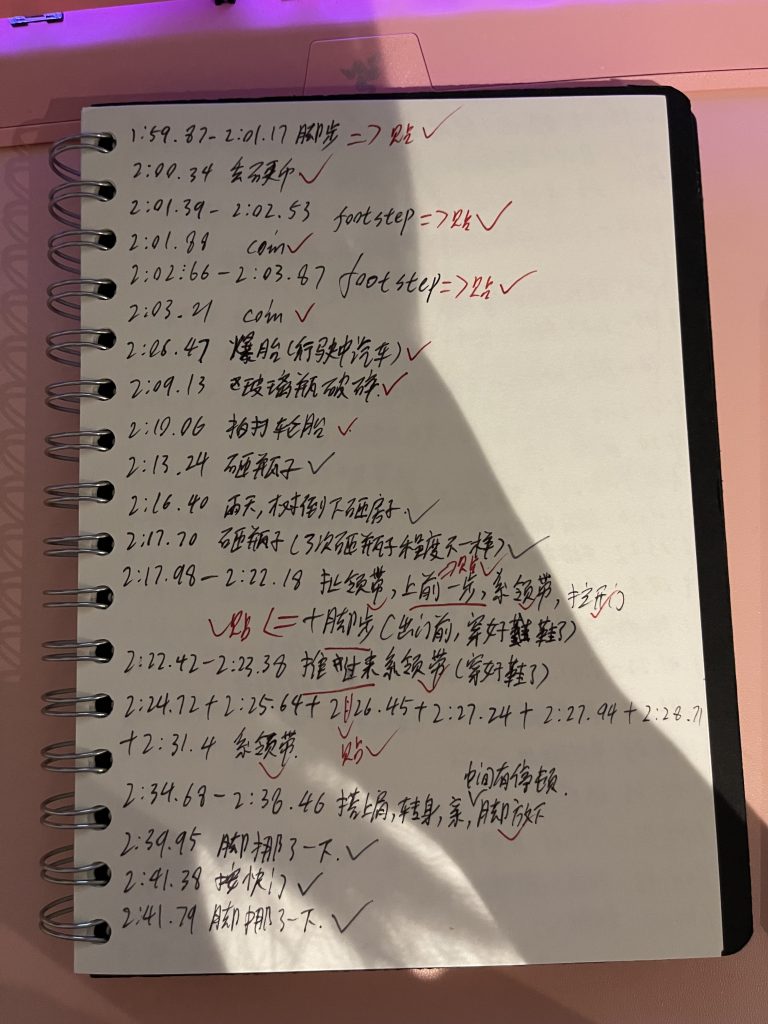 1:59.87-2:01.17 脚步 => 贴✓
2:00.34 硬币✓
2:01.39-2:02.53 footstep=>贴✓
2:01.88 coin✓
2:02:66-2:03.87 footstep=>贴✓
2:03.21 coin✓
2:06.47 爆胎(行驶中汽车)✓
2:09.13 玻璃瓶破碎✓
2:10.06 拍打轮胎✓
2:13.24 砸瓶子✓
2:16.40 雨天,树倒下砸房子.✓
2:17.70 砸瓶子(3次砸瓶子程度不一样)✓
=>贴✓
2:17.98-2:22.18 扯领带,上前一步,系领带,拉开门
✓贴<=+脚步(出门前,穿好鞋了)
2:22.42-2:23.38 推过来系领带(穿好鞋了)
2:24.72+2:25.64+2:26.45+2:27.24+2:27.94+2:28.71
+2:31.4 系领带. 贴✓
中间有停顿.
2:34.68-2:38.46 搭上肩,转身,亲,脚放下
2:39.95 脚挪了一下.✓
2:41.38 按快门✓
2:41.79 脚挪了一下.✓